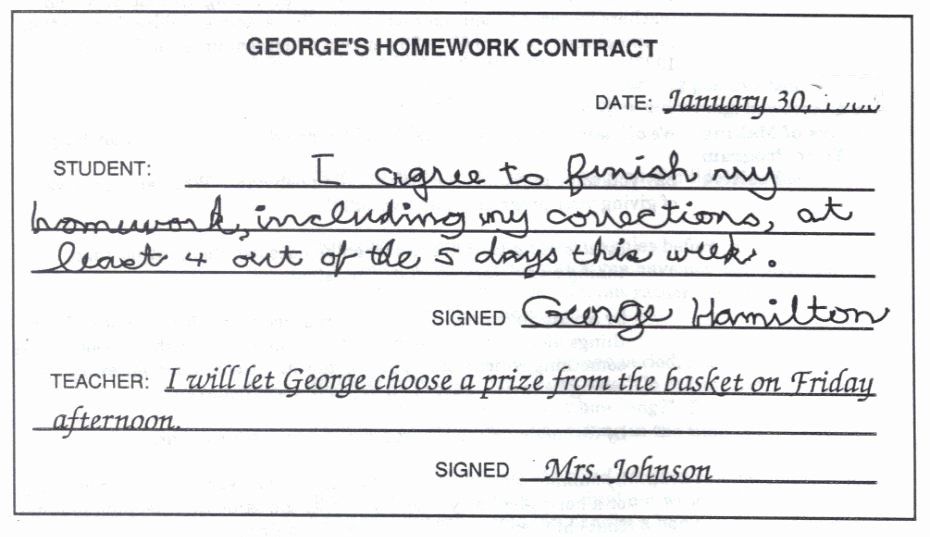 GEORGE'S HOMEWORK CONTRACT
DATE: January 30,
STUDENT: I agree to finish my
homework, including my corrections, at
least 4 out of the 5 days this week.
SIGNED George Hamilton
TEACHER: I will let George choose a prize from the basket on Friday
afternoon.
SIGNED Mrs. Johnson